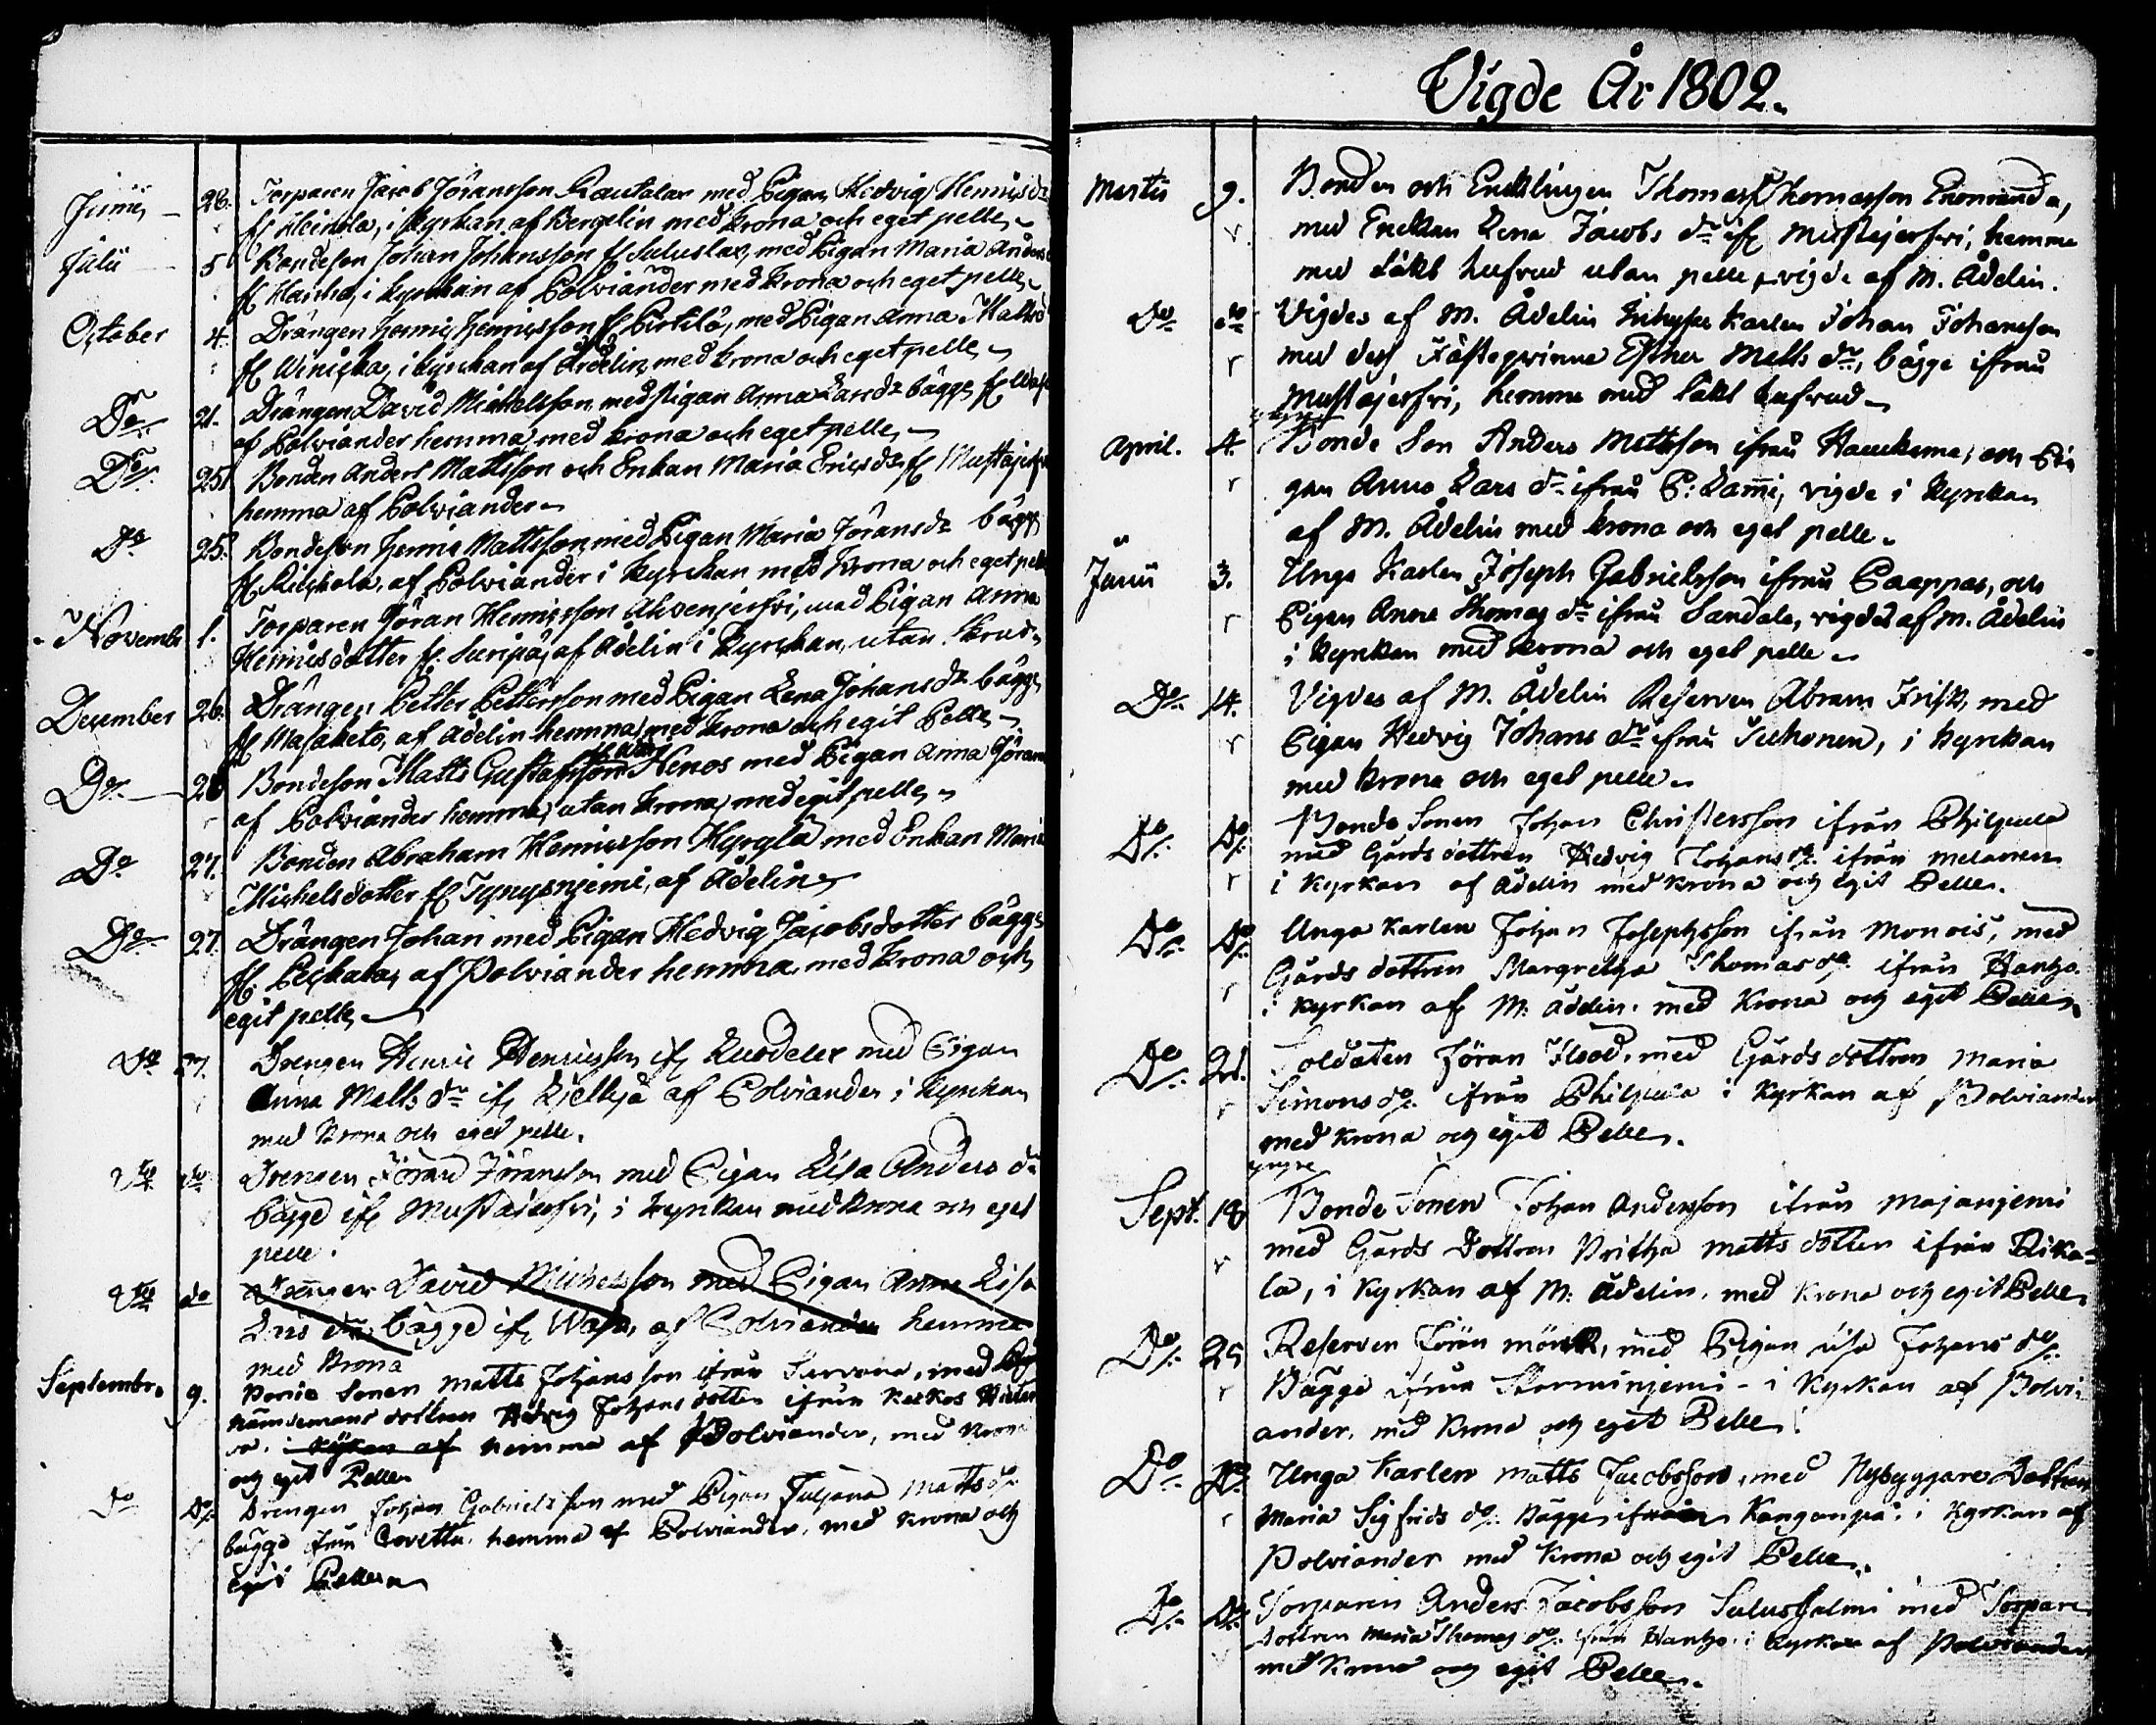 Junii 28. Torparen Jacob Jöransson Rautalax med Pigan Hedvig Henricsdr
fr Heinola, i kyrckan af Bergelin med krona och eget pelle
Julii 5 Bondeson Johan Johansson fr Suluslax, med Pigan Maria Anders
fr Hanho, i kyrckan af Polviander med krona och eget pelle
October 4. Drängen Henric Henricsson fr Pertilä, med Pigan Anna Mattsd
fr , i kyrckan af Ådelin, med krona och eget pelle
Do 21. Drängen David Michelsson med Pigan Anna Larsdr bägge fr
af Polviander hemma med krona och eget pelle
Do 25. Bonden Anders Mattsson och Enkan Maria Ericsdr fr Mustajerfvi
hemma af Polviander
Do 25. Bondeson Henric Mattsson med Pigan Maria Jöransdr bägge
fr , af Polviander i kyrckan med krona och eget pelle
Novembr 1. Torparen Jöran Henricsson Ahvenjerfvi, med Pigan Anna
Henricsdotter fr. Suripä, af Ådelin i kyrckan, utan skrud
December 26. Drängen Petter Pettersson med Pigan Lena Johansdr bägge
fr Majaketo, af Ådelin hemma, med krona och egit Pelle
Do 26 Bondeson Matts Gustafsson Henos med Pigan Anna Jörans
af Polviander hemma, utan krona, med egit pelle
Do 27. Bonden Abraham Henricsson Hyrylä med Enkan Maria
Michelsdotter fr Tynysnjemi, af Ådelin
Do 27. Drängen Johan med Pigan Hedvig Jacobsdotter bägge
fr. Peckala, af Polviander hemma, med krona och
egit pelle
Do 27. Drengen Henric Henricsson ifr med Pigan
Anna Matts dr ifr af Polviander i kyrckan
med krona och eget pelle.
Do do Drengen Jöran Jöransson med Pigan Lisa Anders dr
bägge ifr Mustajerfvi, i kyrckan med krona och eget
pelle.
Do do Drengen David Michelsson med Pigan Anna Lisa
Lars dr bägge ifr , af Polviander hemma
med krona
Septembr. 9. Bonde Sonen Matts Johansson ifrån , med
Nämdemans dottren Hedvig Johans dotter ifrån Keckos
i kyrkan af hemma af Polviander, med krona
och egit Pelle
Do Do Drengen Johan Gabrielsson med Pigan Juljana Matts dr
bägge ifrån Covetta hemma af Polviander, med krona och
egit Pelle
Vigde År 1802.
Martii 9. Bonden och Encklingen Thomas Thomasson ,
med Enckan Lena Jacobs dr ifr Mustajerfvi, hemma
med Läkt hufvud utan pelle, vigde af M. Ådelin.
Do do Vigdes af M. Ådelin karlen Johan Johansson
med dess Fästeqvinna Esther Matts dr, bägge ifrån
Mustajerfvi, hemma med läkt hufvud
April. 4. Bonde Son Anders Mattsson ifrån Hauckama, och Pi
gan Anna Lars dr ifrån P: Lammi, vigde i kyrckan
af M. Ådelin med krona och eget pelle.
Junii 3. Unga Karlen Joseph Gabrielsson ifrån Caappas, och
Pigan Anna Thomas dr ifrån Sandala, vigdes af M. Ådelin
i kyrckan med krona och eget pelle
Do 14. Vigdes af M. Ådelin Reserven Abram Frisk, med
Pigan Hedvig Johans dr ifrån Suhonen, i kyrckan
med krona och eget pelle
Do Do Bonde Sonen Johan Christersson ifrån Philpula
med Gårds dottren Hedvig Johans dr. ifrån
i Kyrkan af Ådelin med krona och egit Pelle.
Do Do Unga Karlen Johan Josephsson ifrån Monois, med
Gårds dottren Margretha Thomas dr ifrån Hanho
i Kyrkan af M. Ådelin. med Krona och egit Pelle
Do 21. Soldaten Jöran Flood, med Gårds dottren Maria
Simons dr. ifrån Philpula i Kyrkan af Polviander
med krona och egit Pelle.
yngre
Sept. 18 Bonde Sonen Johan Andersson ifrån Majanjemi
med Gårds Dottren Britha Matts dotter ifrån Rika-
la, i Kyrkan af M. Ådelin. med Krona och egit Pelle
Do 25 Reserven Jöran Mörck, med Pigan Lisa Johans dr.
Bägge ifrån Storminjemi i Kyrkan af Polvi-
ander. med Krona och eget Pelle
Do Do Unga Karlen Matts Jacobsson, med Nybyggare Dottren
Maria Sigfrids dr. Bägge ifrån Kangonpä, i Kyrkan af
Polviander med Krona och egit Pelle.
Do Do Torparen Anders Jacobsson Sulushalmi med Torpare
Dottren Maria Thomas dr. från Hanho i Kyrkan af Polviander
med Krona och egit Pelle.